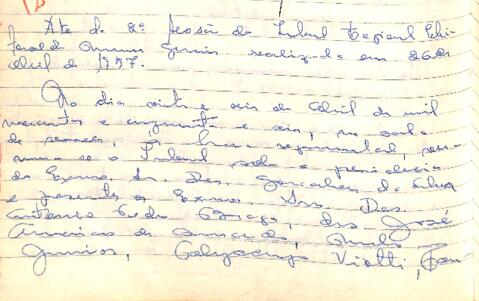 Ata da 2ª sessão do Tribunal Regional Elei
toral de Minas Gerais realizada em 26 de
abril de 1957.
No dia vinte e seis de abril de mil
novecentos e cinquenta e seis, na sala
de sessões, à hora regimental, reu
niu-se o Tribunal sob a presidência
do Exmo. Sr. Des. Gonçalves da Silva
e presentes os Exmos. Srs. Des.
Antonio Pedro Braga, drs. José
Americo de Macedo,
Junior, Vi